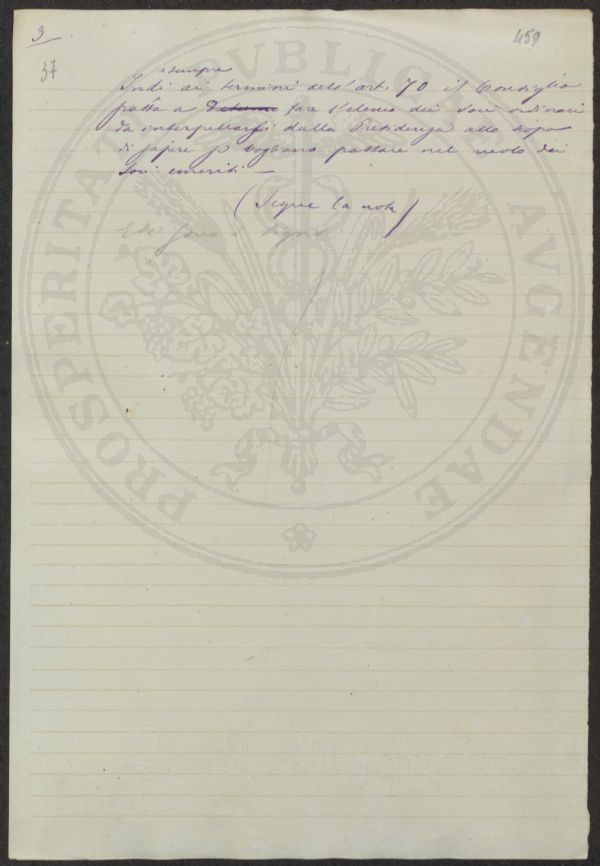 3
459
37
sempre
Indi ai termini dell'art. 70 il Consiglio
passa a fare l'elenco dei Soci ordinari
da interpellarsi dalla Presidenza allo scopo
di sapere se vogliano passare nel ruolo dei
Soci emeriti —
(Segue la nota)
PROSPERITATI PUBLICAE AUGENDAE